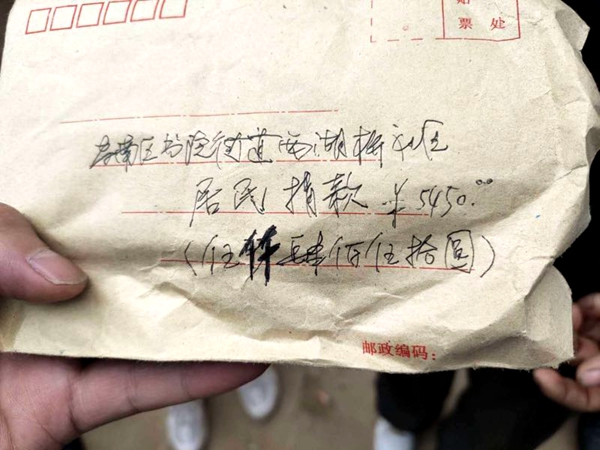 贴
票 处
岳塘区书院街道西湖桥社区
居民捐款 ￥5450.00
(伍仟肆佰伍拾圆)
邮政编码: